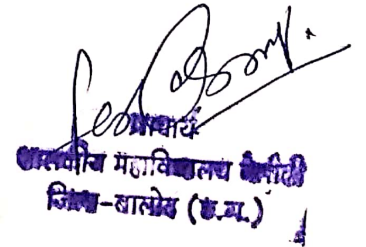 प्राचार्य
शासकीय महाविद्यालय
जिला-बालोद (छ.ग.)